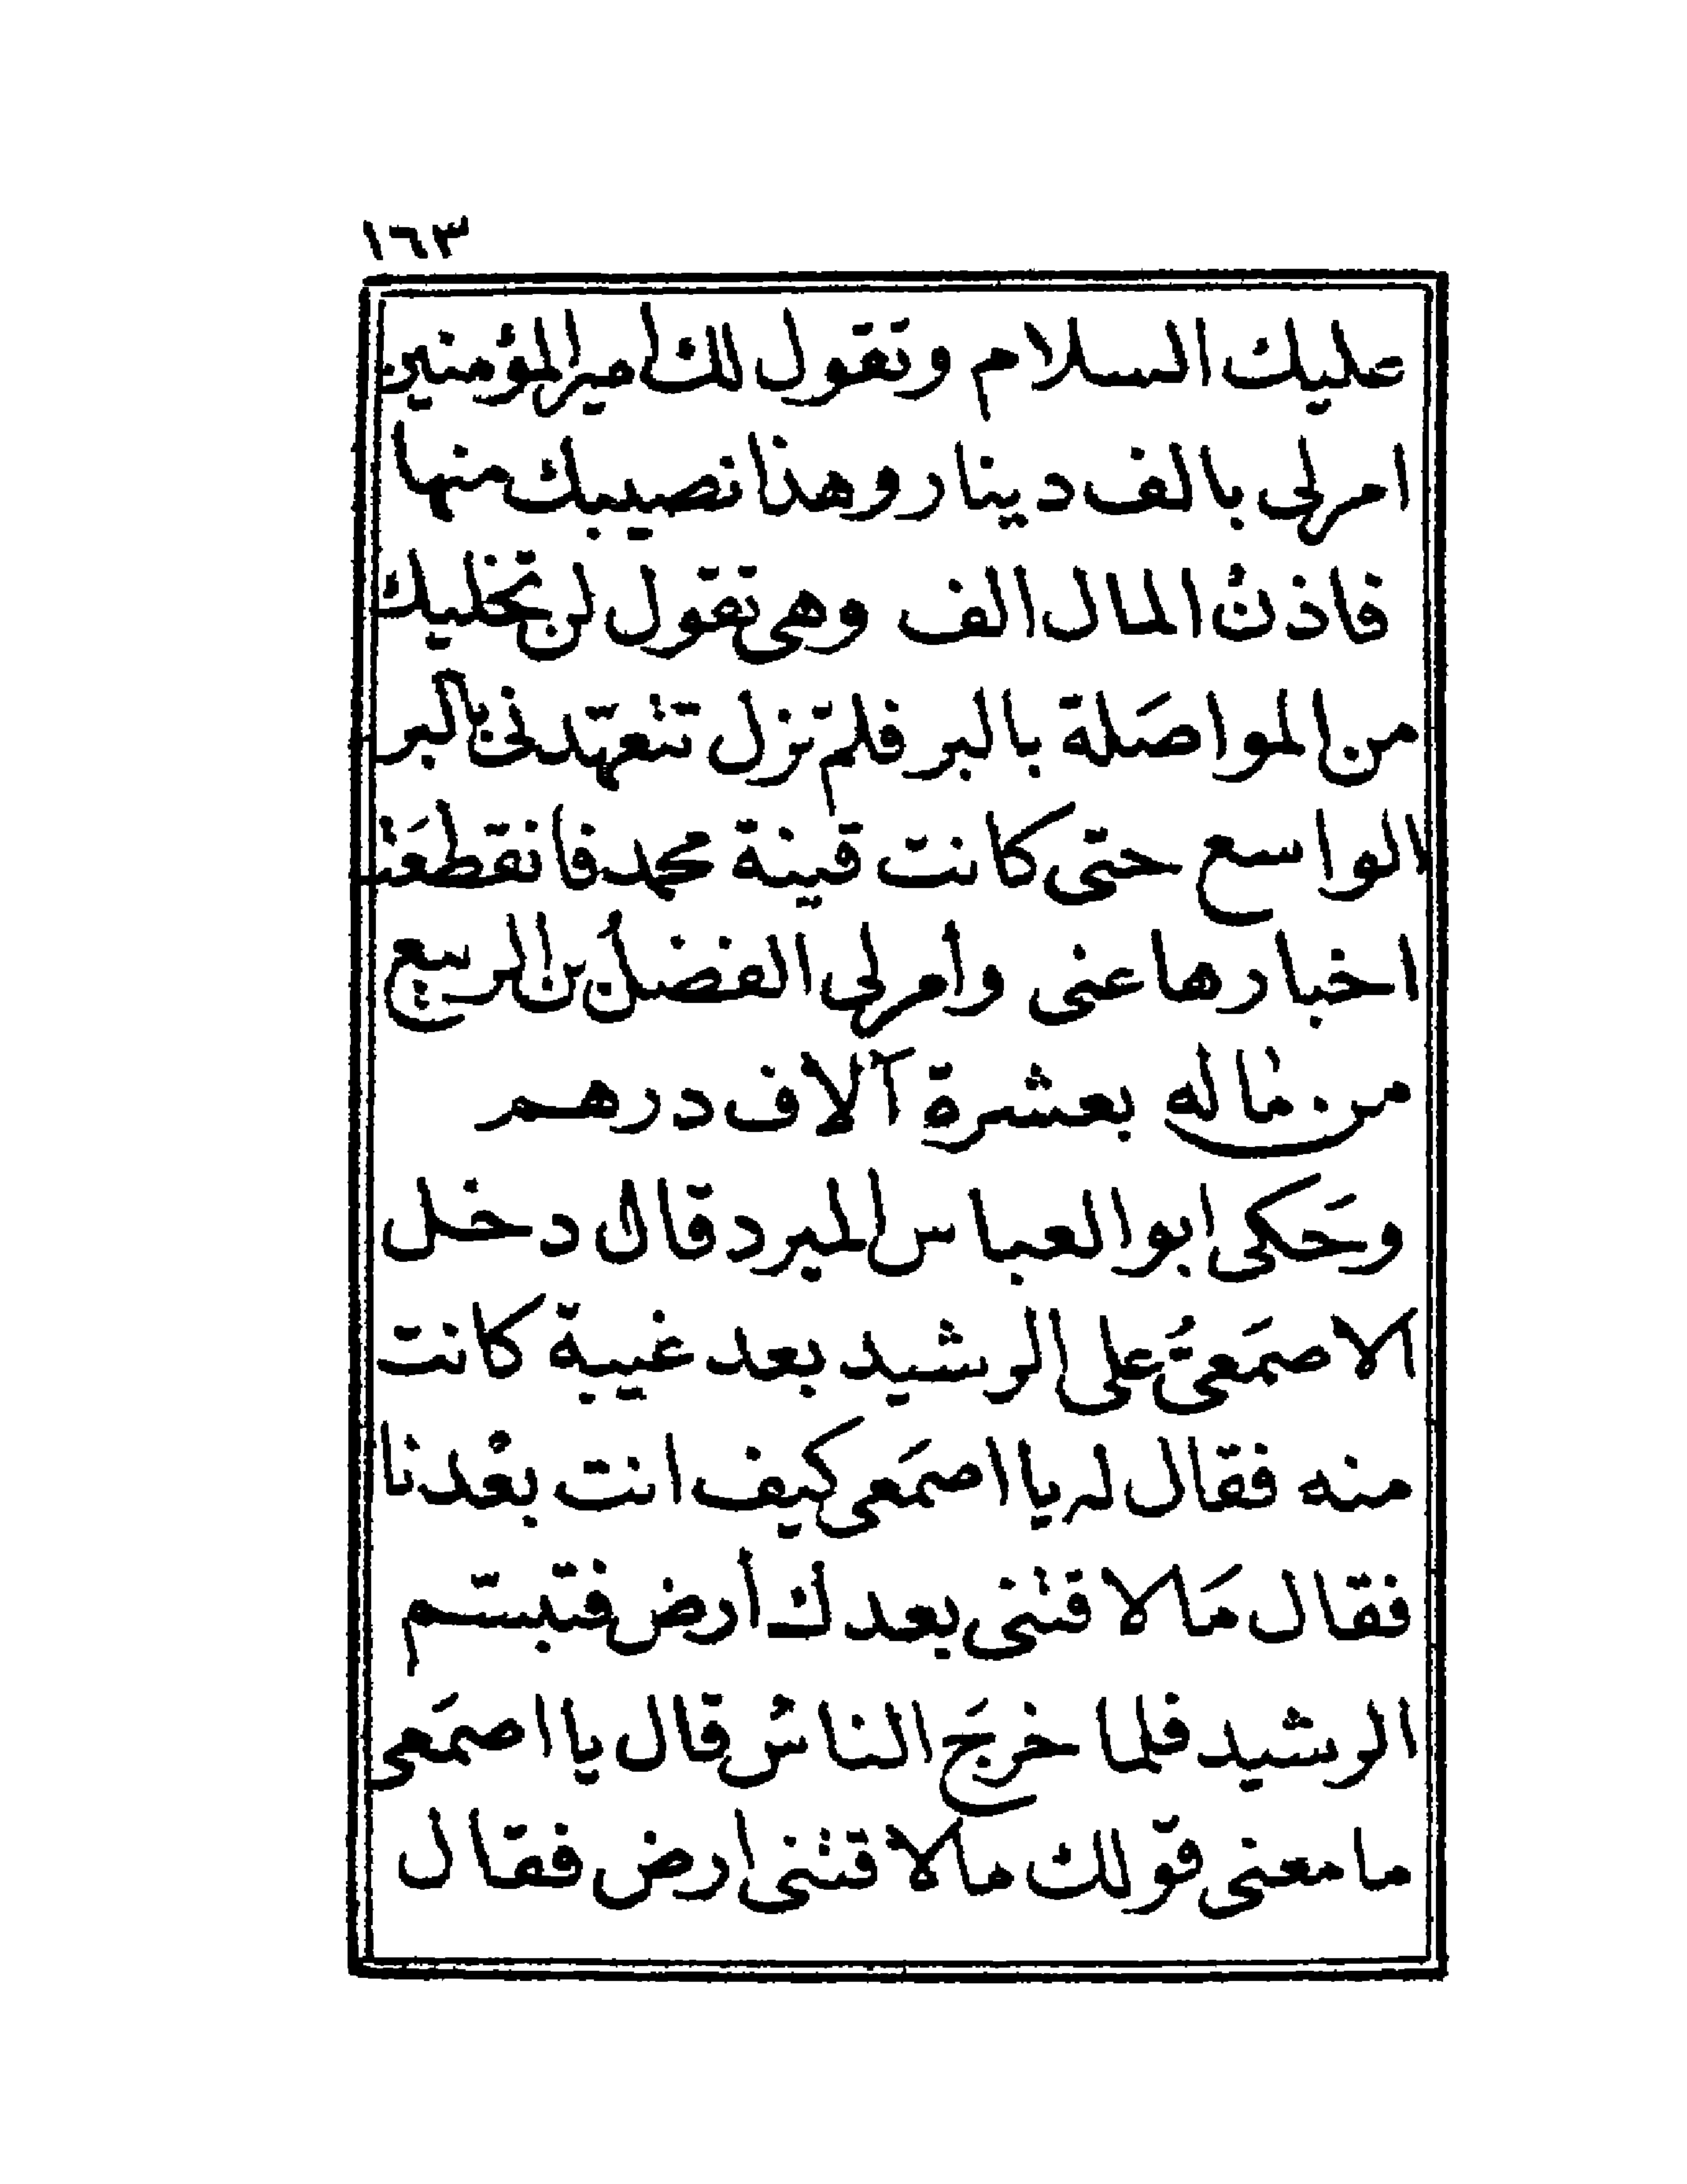 ١٦٣
عليك السلام وتقول لك امير المؤمنين
امر لى بالف دينار وهذا نصيبك منها
فاذنْ المال الف وهى تقول لن تخليك
من المواصَلة بالبر فلم تزل تتعهّدنى بالبر
الواسع حتى كانت قينة محمد فانقطعَت
اخبارها عنى وأمر لى الفضلُ بن الربيع
من ماله بعشرة آلاف درهم
وحَكى ابو العباس المبرد قال دخل
الاصمَعىُّ على الرشيد بعد غيبة كانت
منه فقال له يا اصمَعى كيف انت بعْدنا
فقال مَا لاقتنى بعدك أرض فتبسّم
الرشيد فلما خرجَ الناسُ قال يا اصمَعى
ما معنى قولك ما لاقتنى ارض فقال